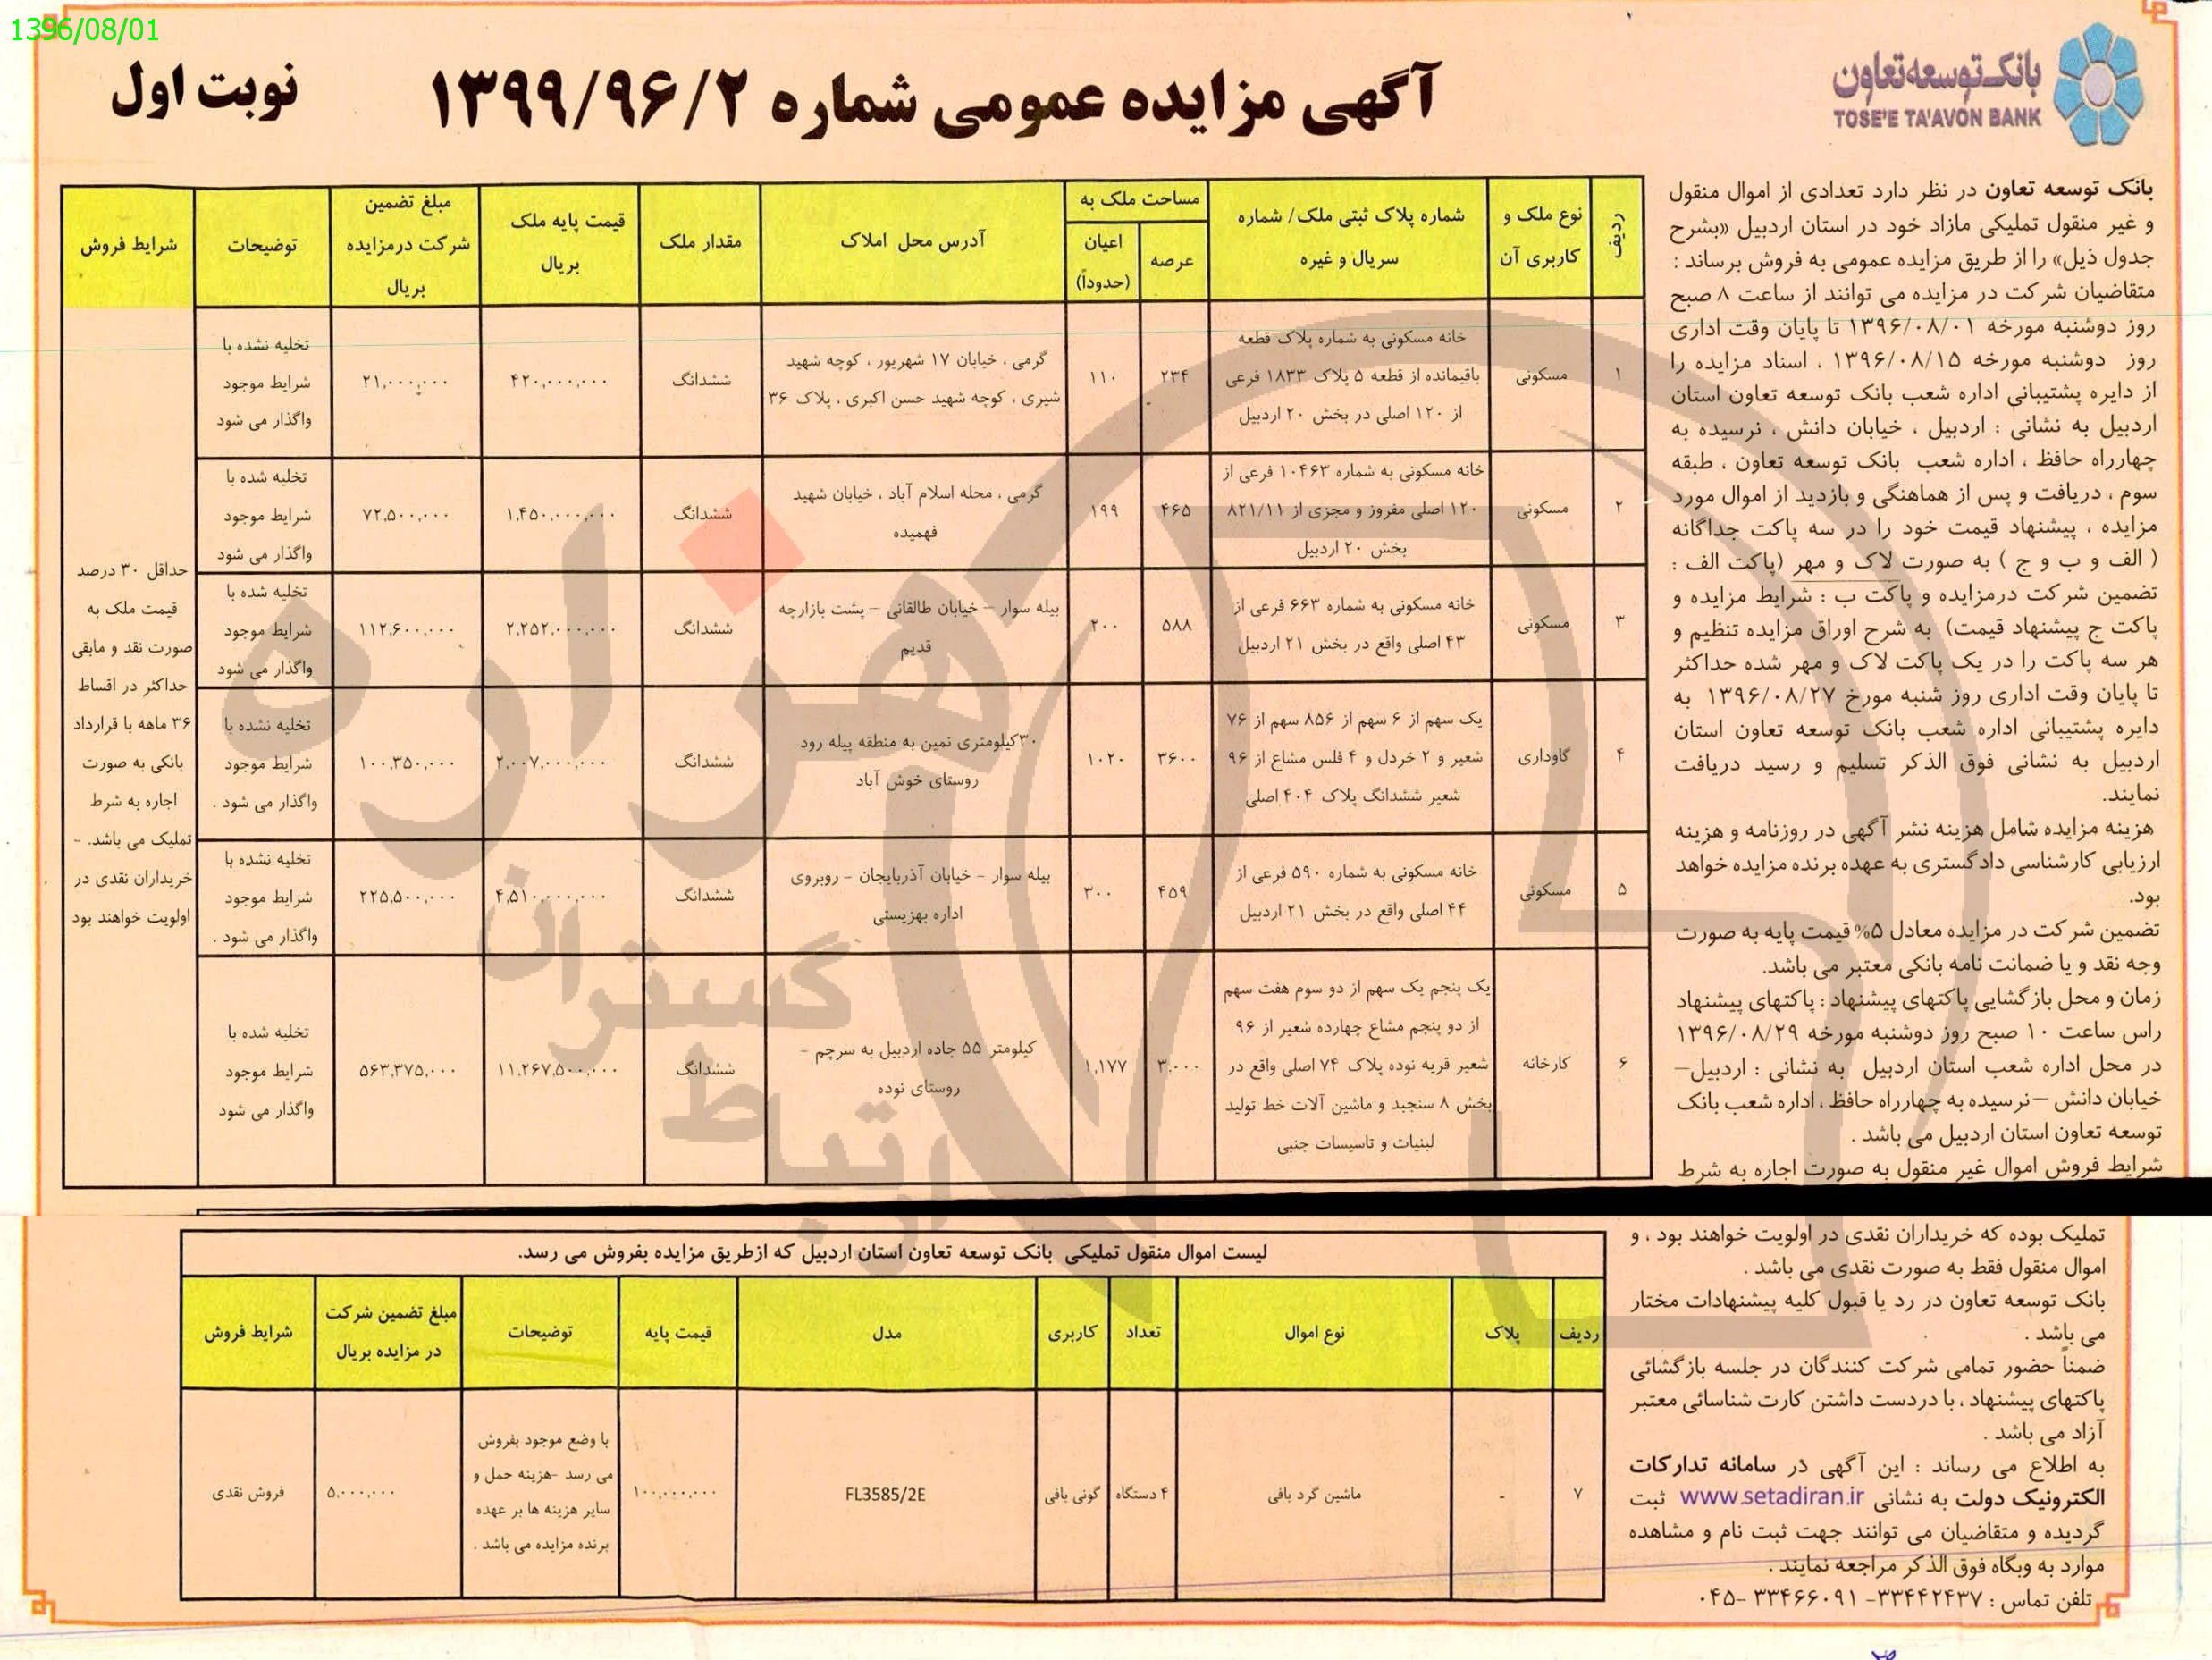 1396/08/01
بانک توسعه تعاون
TOSE'E TA'AVON BANK
آگهی مزایده عمومی شماره ۱۳۹۹/۹۶/۲
نوبت اول
بانک توسعه تعاون در نظر دارد تعدادی از اموال منقول
و غیر منقول تملیکی مازاد خود در استان اردبیل «بشرح
جدول ذیل» را از طریق مزایده عمومی به فروش برساند :
متقاضیان شرکت در مزایده می توانند از ساعت ۸ صبح
روز دوشنبه مورخه ۱۳۹۶/۰۸/۰۱ تا پایان وقت اداری
روز دوشنبه مورخه ۱۳۹۶/۰۸/۱۵ ، اسناد مزایده را
از دایره پشتیبانی اداره شعب بانک توسعه تعاون استان
اردبیل به نشانی : اردبیل ، خیابان دانش ، نرسیده به
چهارراه حافظ ، اداره شعب بانک توسعه تعاون ، طبقه
سوم ، دریافت و پس از هماهنگی و بازدید از اموال مورد
مزایده ، پیشنهاد قیمت خود را در سه پاکت جداگانه
( الف و ب و ج ) به صورت لاک و مهر (پاکت الف :
تضمین شرکت درمزایده و پاکت ب : شرایط مزایده و
پاکت ج پیشنهاد قیمت) به شرح اوراق مزایده تنظیم و
هر سه پاکت را در یک پاکت لاک و مهر شده حداکثر
تا پایان وقت اداری روز شنبه مورخ ۱۳۹۶/۰۸/۲۷ به
دایره پشتیبانی اداره شعب بانک توسعه تعاون استان
اردبیل به نشانی فوق الذکر تسلیم و رسید دریافت
نمایند.
هزینه مزایده شامل هزینه نشر آگهی در روزنامه و هزینه
ارزیابی کارشناسی دادگستری به عهده برنده مزایده خواهد
بود.
تضمین شرکت در مزایده معادل ۵% قیمت پایه به صورت
وجه نقد و یا ضمانت نامه بانکی معتبر می باشد.
زمان و محل بازگشایی پاکتهای پیشنهاد : پاکتهای پیشنهاد
راس ساعت ۱۰ صبح روز دوشنبه مورخه ۱۳۹۶/۰۸/۲۹
در محل اداره شعب استان اردبیل به نشانی : اردبیل–
خیابان دانش –نرسیده به چهارراه حافظ ، اداره شعب بانک
توسعه تعاون استان اردبیل می باشد .
شرایط فروش اموال غیر منقول به صورت اجاره به شرط
تملیک بوده که خریداران نقدی در اولویت خواهند بود ، و
اموال منقول فقط به صورت نقدی می باشد .
بانک توسعه تعاون در رد یا قبول کلیه پیشنهادات مختار
می باشد .
ضمناً حضور تمامی شرکت کنندگان در جلسه بازگشائی
پاکتهای پیشنهاد ، با دردست داشتن کارت شناسائی معتبر
آزاد می باشد .
به اطلاع می رساند : این آگهی در سامانه تدارکات
الکترونیک دولت به نشانی www.setadiran.ir ثبت
گردیده و متقاضیان می توانند جهت ثبت نام و مشاهده
موارد به وبگاه فوق الذکر مراجعه نمایند .
تلفن تماس : ۳۳۴۴۲۴۳۷- ۳۳۴۶۶۰۹۱ -۰۴۵
ردیف
نوع ملک و
کاربری آن
شماره پلاک ثبتی ملک/ شماره
سریال و غیره
مساحت ملک به
عرصه
اعیان
(حدوداً)
آدرس محل املاک
مقدار ملک
قیمت پایه ملک
بریال
مبلغ تضمین
شرکت درمزایده
بریال
توضیحات
شرایط فروش
۱
مسکونی
خانه مسکونی به شماره پلاک قطعه
باقیمانده از قطعه ۵ پلاک ۱۸۳۳ فرعی
از ۱۲۰ اصلی در بخش ۲۰ اردبیل
۲۳۴
۱۱۰
گرمی ، خیابان ۱۷ شهریور ، کوچه شهید
شیری ، کوچه شهید حسن اکبری ، پلاک ۳۶
ششدانگ
۴۲۰,۰۰۰,۰۰۰
۲۱,۰۰۰,۰۰۰
تخلیه نشده با
شرایط موجود
واگذار می شود
۲
مسکونی
خانه مسکونی به شماره ۱۰۴۶۳ فرعی از
۱۲۰ اصلی مفروز و مجزی از ۸۲۱/۱۱
بخش ۲۰ اردبیل
۴۶۵
۱۹۹
گرمی ، محله اسلام آباد ، خیابان شهید
فهمیده
ششدانگ
۱,۴۵۰,۰۰۰,۰۰۰
۷۲,۵۰۰,۰۰۰
تخلیه شده با
شرایط موجود
واگذار می شود
۳
مسکونی
خانه مسکونی به شماره ۶۶۳ فرعی از
۴۳ اصلی واقع در بخش ۲۱ اردبیل
۵۸۸
۲۰۰
بیله سوار – خیابان طالقانی – پشت بازارچه
قدیم
ششدانگ
۲,۲۵۲,۰۰۰,۰۰۰
۱۱۲,۶۰۰,۰۰۰
تخلیه شده با
شرایط موجود
واگذار می شود
۴
گاوداری
یک سهم از ۶ سهم از ۸۵۶ سهم از ۷۶
شعیر و ۲ خردل و ۴ فلس مشاع از ۹۶
شعیر ششدانگ پلاک ۴۰۴ اصلی
۳۶۰۰
۱۰۲۰
۳۰کیلومتری نمین به منطقه پیله رود
روستای خوش آباد
ششدانگ
۲,۰۰۷,۰۰۰,۰۰۰
۱۰۰,۳۵۰,۰۰۰
تخلیه نشده با
شرایط موجود
واگذار می شود .
۵
مسکونی
خانه مسکونی به شماره ۵۹۰ فرعی از
۴۴ اصلی واقع در بخش ۲۱ اردبیل
۴۵۹
۳۰۰
بیله سوار – خیابان آذربایجان – روبروی
اداره بهزیستی
ششدانگ
۴,۵۱۰,۰۰۰,۰۰۰
۲۲۵,۵۰۰,۰۰۰
تخلیه نشده با
شرایط موجود
واگذار می شود .
۶
کارخانه
یک پنجم یک سهم از دو سوم هفت سهم
از دو پنجم مشاع چهارده شعیر از ۹۶
شعیر قریه نوده پلاک ۷۴ اصلی واقع در
بخش ۸ سنجبد و ماشین آلات خط تولید
لبنیات و تاسیسات جنبی
۳,۰۰۰
۱,۱۷۷
کیلومتر ۵۵ جاده اردبیل به سرچم –
روستای نوده
ششدانگ
۱۱,۲۶۷,۵۰۰,۰۰۰
۵۶۳,۳۷۵,۰۰۰
تخلیه شده با
شرایط موجود
واگذار می شود
حداقل ۳۰ درصد
قیمت ملک به
صورت نقد و مابقی
حداکثر در اقساط
۳۶ ماهه با قرارداد
بانکی به صورت
اجاره به شرط
تملیک می باشد. -
خریداران نقدی در
اولویت خواهند بود
لیست اموال منقول تملیکی بانک توسعه تعاون استان اردبیل که ازطریق مزایده بفروش می رسد.
ردیف
پلاک
نوع اموال
تعداد
کاربری
مدل
قیمت پایه
توضیحات
مبلغ تضمین شرکت
در مزایده بریال
شرایط فروش
۷
-
ماشین گرد بافی
۴ دستگاه
گونی بافی
FL3585/2E
۱۰۰,۰۰۰,۰۰۰
با وضع موجود بفروش
می رسد -هزینه حمل و
سایر هزینه ها بر عهده
برنده مزایده می باشد .
۵,۰۰۰,۰۰۰
فروش نقدی
هزاره
گستران
ارتباط